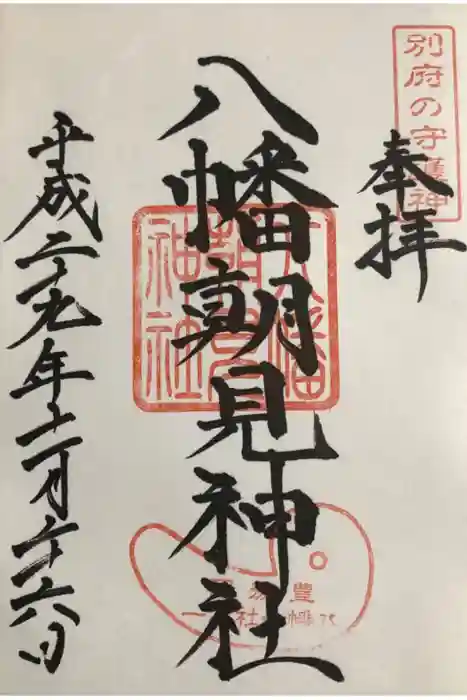 別府の守護神
奉拝
八幡朝見神社
八幡朝見神社
平成二十九年十一月二十六日